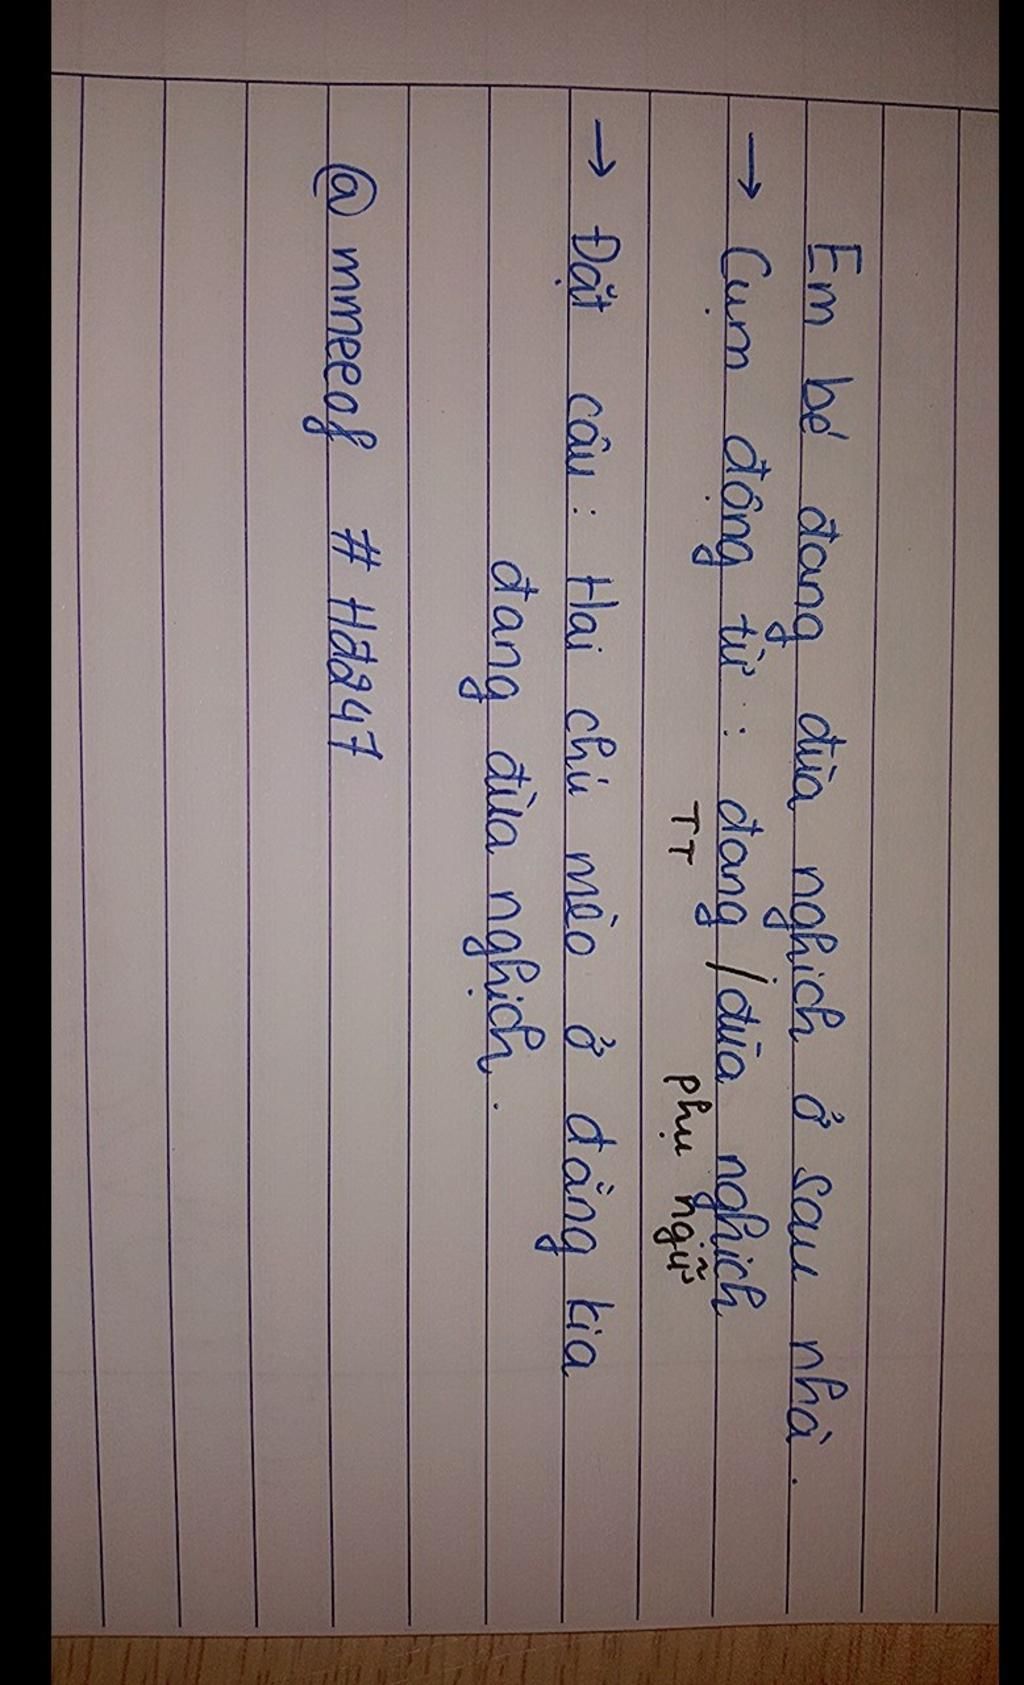 Em bé đang đùa nghịch ở sau nhà.
→ Cụm động từ : đang / đùa nghịch
TT phụ ngữ
→ Đặt câu : Hai chú mèo ở đằng kia
đang đùa nghịch.
@ mmeeof # Hđ247